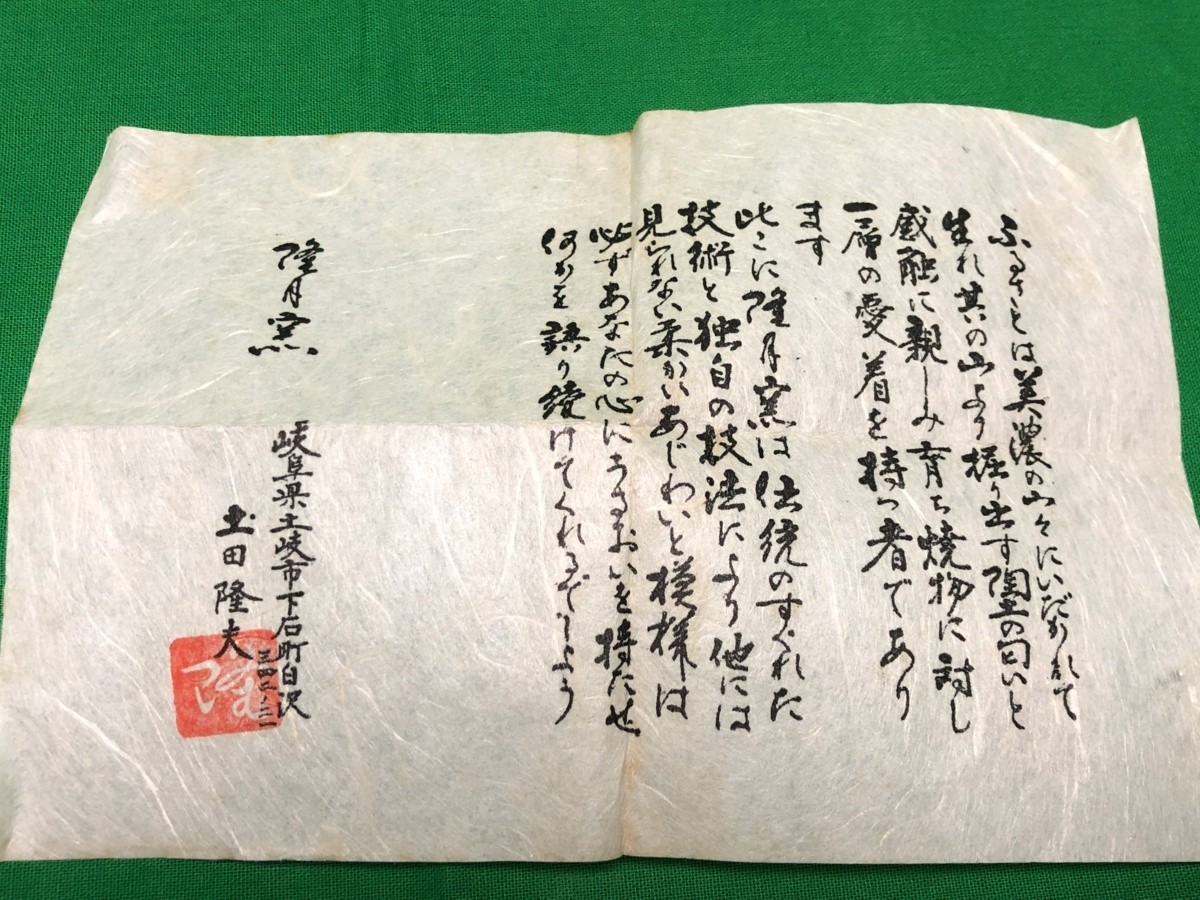 ふるさとは美濃の山々にいだかれて
生れ其の山より掘り出す陶土の匂いと
感触に親しみ育ち焼物に対し
一層の愛着を持つ者であり
ます
此こに隆月窯は伝統のすぐれた
技術と独自の技法により他には
見られない柔かいあじわいと模様は
必ずあなたの心にうるおいを持たせ
何かを語り続けてくれるでしょう
隆月窯
岐阜県土岐市下石町白沢
土田隆夫